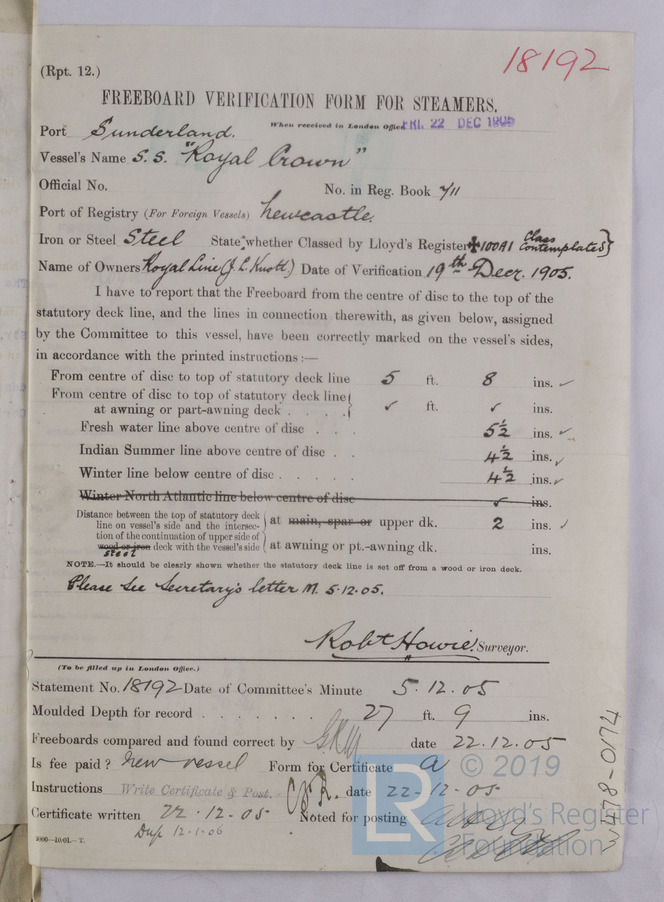 18192
(Rpt. 12.)
FREEBOARD VERIFICATION FORM FOR STEAMERS.
When received in London Office FRI. 22 DEC 1905
Port Sunderland.
Vessel's Name S.S. "Royal Crown"
Official No. No. in Reg. Book 7/11
Port of Registry (For Foreign Vessels) Newcastle.
Iron or Steel Steel State whether Classed by Lloyd's Register ✠100A1 Class Contemplated}
Name of Owners Royal Line (J. L. Knott) Date of Verification 19th Decr. 1905.
I have to report that the Freeboard from the centre of disc to the top of the
statutory deck line, and the lines in connection therewith, as given below, assigned
by the Committee to this vessel, have been correctly marked on the vessel's sides,
in accordance with the printed instructions:—
From centre of disc to top of statutory deck line 5 ft. 8 ins. ✓
From centre of disc to top of statutory deck line
at awning or part-awning deck . . . . ✓ ft. ✓ ins.
Fresh water line above centre of disc . . . 5½ ins. ✓
Indian Summer line above centre of disc . . 4½ ins. ✓
Winter line below centre of disc . . . . . . 4½ ins. ✓
Winter North Atlantic line below centre of disc ✓ ins.
Distance between the top of statutory deck
line on vessel's side and the intersec- at main, spar or upper dk. 2 ins. ✓
tion of the continuation of upper side of
wood or iron steel deck with the vessel's side at awning or pt.-awning dk. ins.
NOTE.—It should be clearly shown whether the statutory deck line is set off from a wood or iron deck.
Please see Secretary's letter M. 5.12.05.
Robt Howie Surveyor.
(To be filled up in London Office.)
Statement No. 18192 Date of Committee's Minute 5.12.05
Moulded Depth for record . . . . . . . 27 ft. 9 ins.
Freeboards compared and found correct by date 22.12.05
Is fee paid? New vessel Form for Certificate A
Instructions Write Certificate & Post. date 22-12-05
Certificate written 22.12.05 Noted for posting
Dup 12-1-06
5000—10.01.—T.
W478-0174
LR
© 2019
Lloyd's Register
Foundation